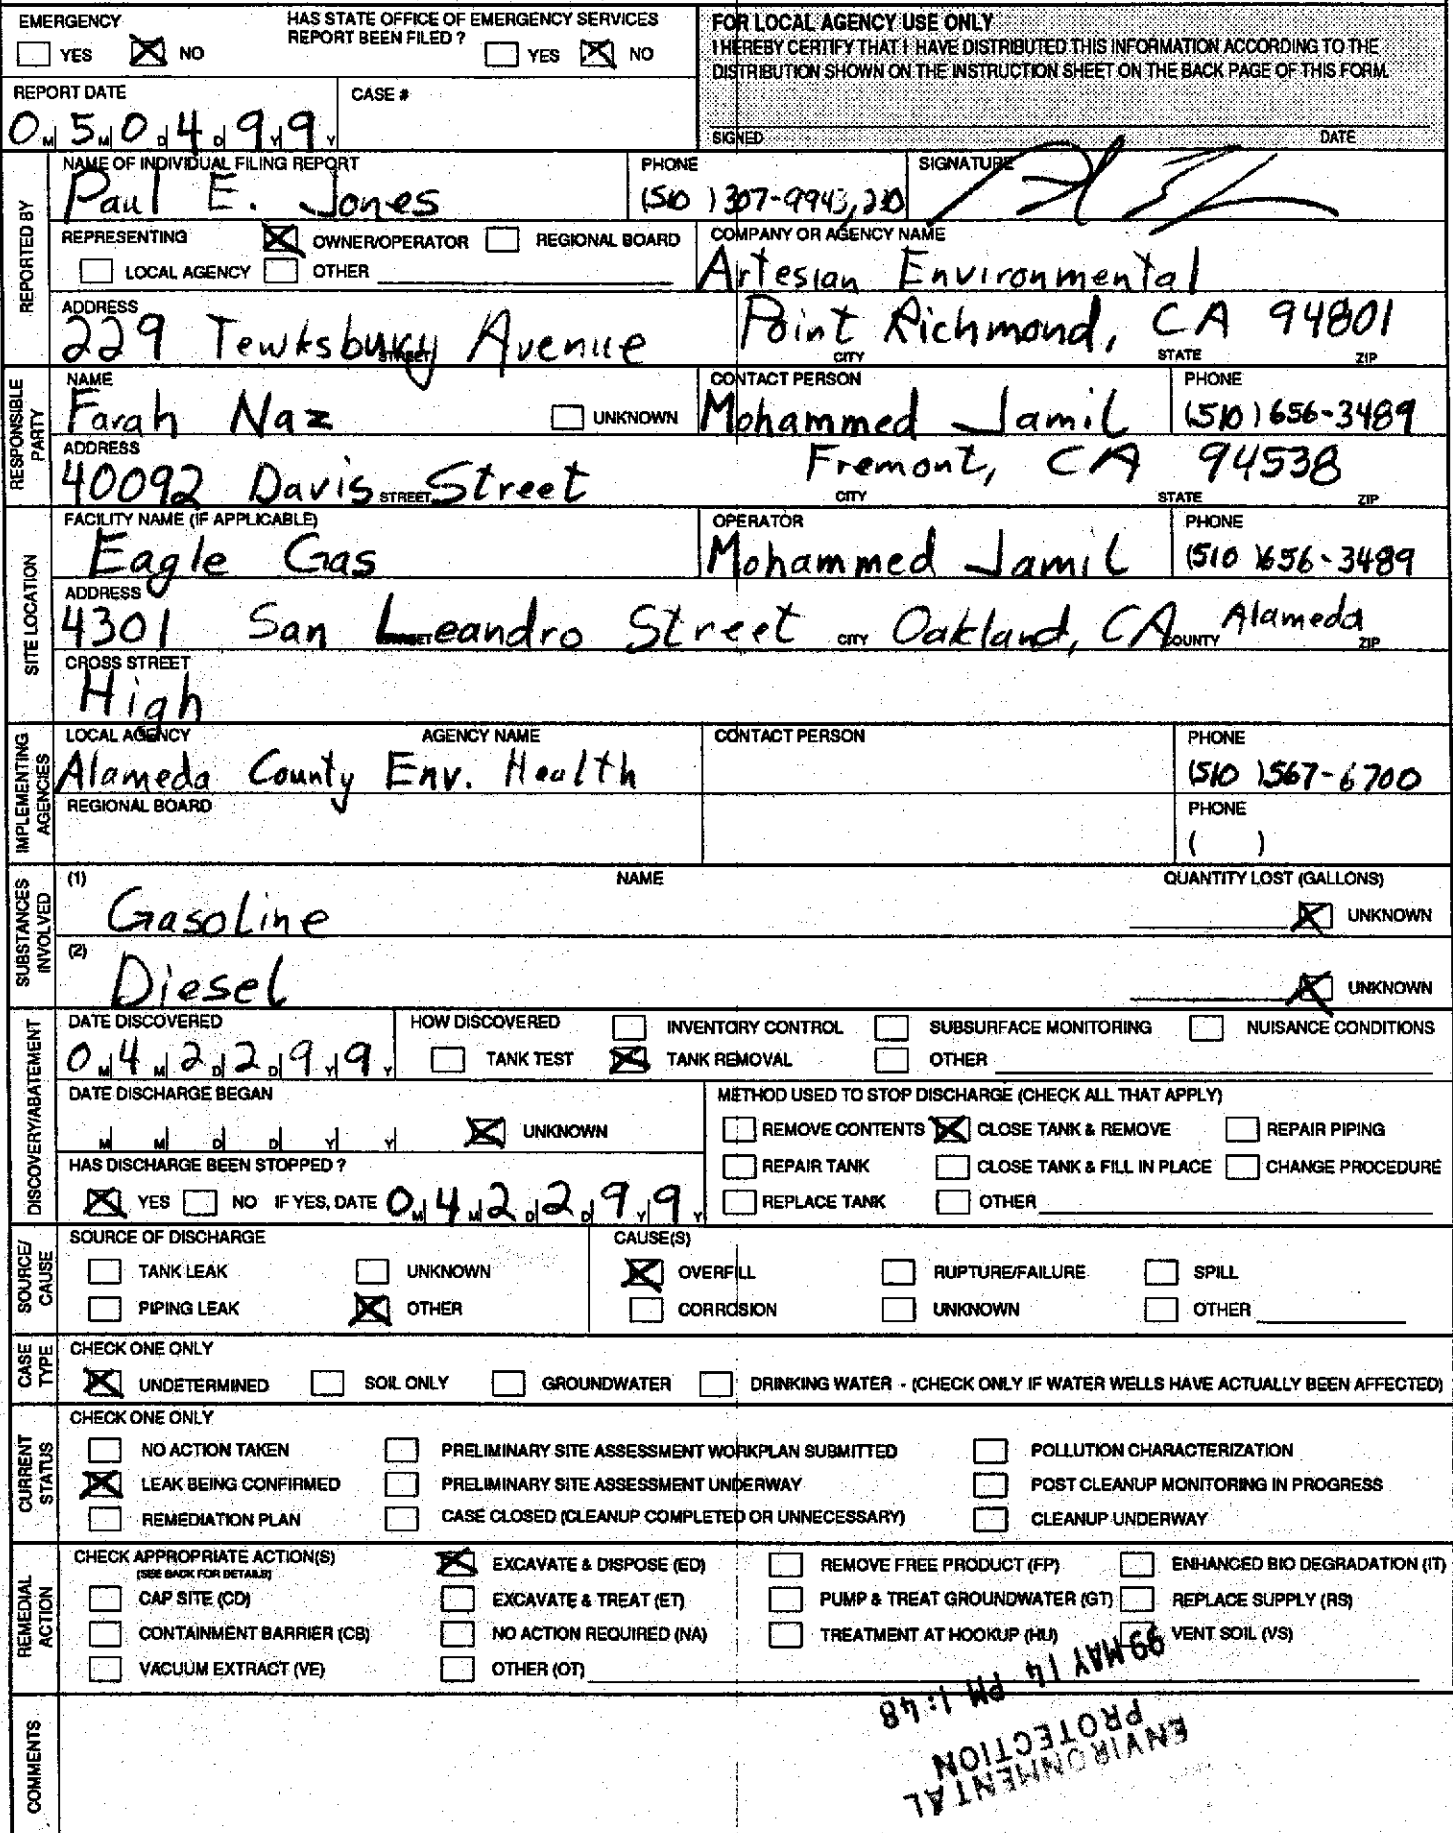 EMERGENCY
YES NO
HAS STATE OFFICE OF EMERGENCY SERVICES
REPORT BEEN FILED ? YES NO
FOR LOCAL AGENCY USE ONLY
I HEREBY CERTIFY THAT I HAVE DISTRIBUTED THIS INFORMATION ACCORDING TO THE
DISTRIBUTION SHOWN ON THE INSTRUCTION SHEET ON THE BACK PAGE OF THIS FORM.
SIGNED DATE
REPORT DATE
0 M 5 M 0 D 4 D 9 Y 9 Y
CASE #
REPORTED BY
NAME OF INDIVIDUAL FILING REPORT
Paul E. Jones
PHONE
(510) 307-9943, 230
SIGNATURE
REPRESENTING OWNER/OPERATOR REGIONAL BOARD
LOCAL AGENCY OTHER
COMPANY OR AGENCY NAME
Artesian Environmental
ADDRESS
229 Tewksbury Avenue Point Richmond, CA 94801
STREET CITY STATE ZIP
RESPONSIBLE PARTY
NAME
Farah Naz UNKNOWN
CONTACT PERSON
Mohammed Jamil
PHONE
(510) 656-3489
ADDRESS
40092 Davis Street Fremont, CA 94538
STREET CITY STATE ZIP
SITE LOCATION
FACILITY NAME (IF APPLICABLE)
Eagle Gas
OPERATOR
Mohammed Jamil
PHONE
(510) 656-3489
ADDRESS
4301 San Leandro Street Oakland, CA Alameda
STREET CITY COUNTY ZIP
CROSS STREET
High
IMPLEMENTING AGENCIES
LOCAL AGENCY AGENCY NAME
Alameda County Env. Health
CONTACT PERSON
PHONE
(510) 567-6700
REGIONAL BOARD
PHONE
( )
SUBSTANCES INVOLVED
(1) NAME QUANTITY LOST (GALLONS)
Gasoline UNKNOWN
(2)
Diesel UNKNOWN
DISCOVERY/ABATEMENT
DATE DISCOVERED
0 M 4 M 2 D 2 D 9 Y 9 Y
HOW DISCOVERED INVENTORY CONTROL SUBSURFACE MONITORING NUISANCE CONDITIONS
TANK TEST TANK REMOVAL OTHER
DATE DISCHARGE BEGAN
M M D D Y Y UNKNOWN
METHOD USED TO STOP DISCHARGE (CHECK ALL THAT APPLY)
REMOVE CONTENTS CLOSE TANK & REMOVE REPAIR PIPING
REPAIR TANK CLOSE TANK & FILL IN PLACE CHANGE PROCEDURE
REPLACE TANK OTHER
HAS DISCHARGE BEEN STOPPED ?
YES NO IF YES, DATE 0 M 4 M 2 D 2 D 9 Y 9 Y
SOURCE/ CAUSE
SOURCE OF DISCHARGE
TANK LEAK UNKNOWN
PIPING LEAK OTHER
CAUSE(S)
OVERFILL RUPTURE/FAILURE SPILL
CORROSION UNKNOWN OTHER
CASE TYPE
CHECK ONE ONLY
UNDETERMINED SOIL ONLY GROUNDWATER DRINKING WATER - (CHECK ONLY IF WATER WELLS HAVE ACTUALLY BEEN AFFECTED)
CURRENT STATUS
CHECK ONE ONLY
NO ACTION TAKEN PRELIMINARY SITE ASSESSMENT WORKPLAN SUBMITTED POLLUTION CHARACTERIZATION
LEAK BEING CONFIRMED PRELIMINARY SITE ASSESSMENT UNDERWAY POST CLEANUP MONITORING IN PROGRESS
REMEDIATION PLAN CASE CLOSED (CLEANUP COMPLETED OR UNNECESSARY) CLEANUP UNDERWAY
REMEDIAL ACTION
CHECK APPROPRIATE ACTION(S)
(SEE BACK FOR DETAILS)
EXCAVATE & DISPOSE (ED) REMOVE FREE PRODUCT (FP) ENHANCED BIO DEGRADATION (IT)
CAP SITE (CD) EXCAVATE & TREAT (ET) PUMP & TREAT GROUNDWATER (GT) REPLACE SUPPLY (RS)
CONTAINMENT BARRIER (CB) NO ACTION REQUIRED (NA) TREATMENT AT HOOKUP (HU) VENT SOIL (VS)
VACUUM EXTRACT (VE) OTHER (OT)
COMMENTS
ENVIRONMENTAL
PROTECTION
99 MAY 14 PM 1:48